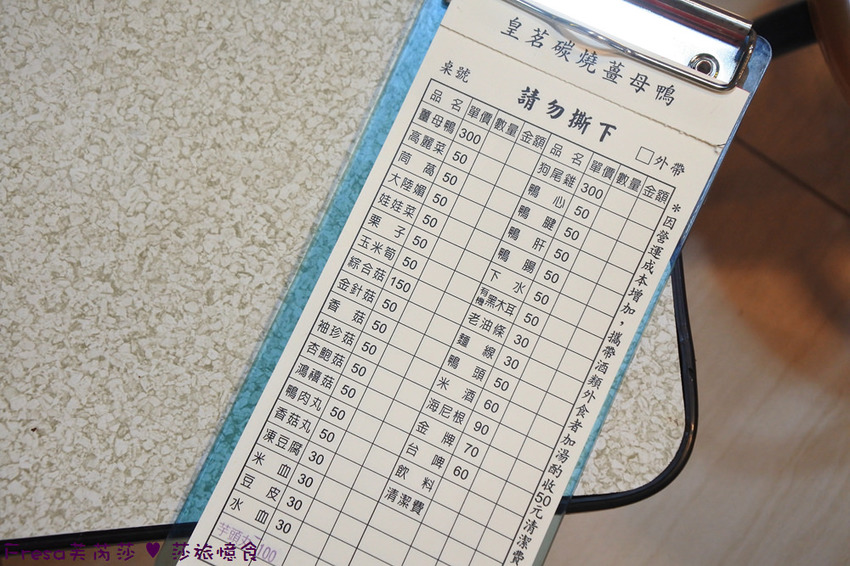 皇茗碳燒薑母鴨
桌號
請勿撕下
□外帶
品名 單價 數量 金額 品名 單價 數量 金額
薑母鴨 300 狗尾雞 300
高麗菜 50 鴨心 50
茼萵 50 鴨腱 50
大陸媚 50 鴨肝 50
娃娃菜 50 鴨腸 50
栗子 50 下水 50
玉米筍 50 有機黑木耳 50
綜合菇 150 老油條 30
金針菇 50 麵線 30
香菇 50 鴨頭 50
袖珍菇 50 米酒 60
杏鮑菇 50 海尼根 90
鴻禧菇 50 金牌 70
鴨肉丸 50 台啤 60
香菇丸 50 飲料
凍豆腐 30 清潔費
米血 30
豆皮 30
水血 30
芋頭 100
*因營運成本增加，攜帶酒類外食者加湯酌收50元清潔費
Fresa芙芮莎 ♥ 莎旅憶食